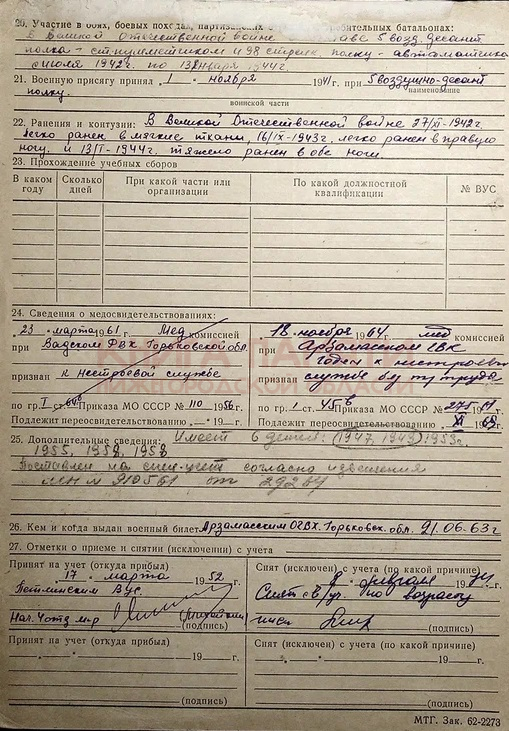 20. Участие в боях, боевых походах, партизанских ребительных батальонах:
в Великой Отечественной войне 5 возд. десант.
полка - ст. пулеметчиком и 98 стрелк. полку - автоматчиком
с июля 1942г. по 13 января 1944г.
21. Военную присягу принял „ 1 " ноября 1941 г. при 5 воздушно-десант.
наименование
полку.
воинской части
22. Ранения и контузии: В Великой Отечественной войне 27/XI-1942г.
легко ранен в мягкие ткани, 16/IX-1943г. легко ранен в правую
ногу. и 13/I-1944г. тяжело ранен в обе ноги.
23. Прохождение учебных сборов
В каком году Сколько дней При какой части или организации По какой должностной квалификации № ВУС
24. Сведения о медосвидетельствованиях:
„ 23 " марта 1961 г. Мед комиссией
при Вадском РВК Горьковской обл.
признан к нестроевой службе
по гр. I ст. Приказа МО СССР № 110 1956 г.
Подлежит переосвидетельствованию „ " г.
„ 18 " ноября 1964 г. мед комиссией
при Арзамасском ГВК
признан годен к нестроевой
службе
по гр. 1 ст. 45в Приказа МО СССР №
Подлежит переосвидетельствованию XI 1969 г.
25. Дополнительные сведения: Имеет 6 детей: (1947, 1949) 1953г.
1955, 1958, 1958
Поставлен на спец-учет согласно извещения
26. Кем и когда выдан военный билет Арзамасским ОГВК. Горьковск. обл. 21.06.63 г
27. Отметки о приеме и снятии (исключении) с учета
Принят на учет (откуда прибыл)
„ 17 " марта 1952 г.
Нач. 4 отд м-р
(подпись)
Снят (исключен) с учета (по какой причине)
19 74 г.
Снят с в/уч. по возрасту
(подпись)
Принят на учет (откуда прибыл)
„ " 19 г.
(подпись)
Снят (исключен) с учета (по какой причине)
„ " 19 г.
(подпись)
МТГ. Зак. 62-2273